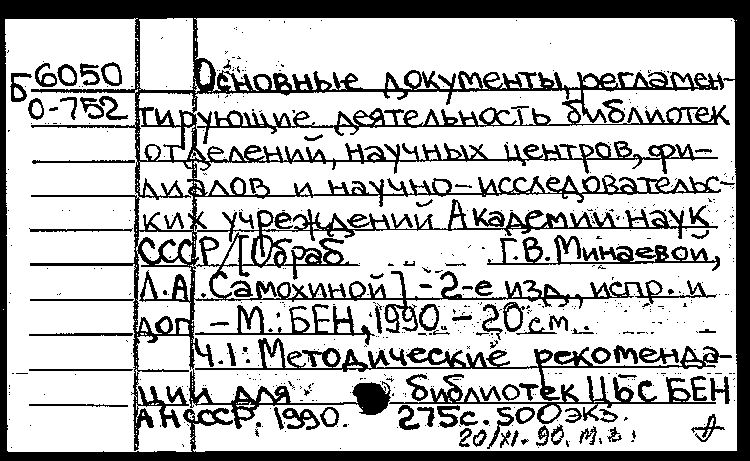 Б 6050
О-752
Основные документы, регламен-
тирующие деятельность библиотек
отделений, научных центров, фи-
лиалов и научно-исследовательс-
ких учреждений Академии наук
СССР / [Обраб. Г.В. Минаевой,
Л.А. Самохиной] - 2-е изд., испр. и
доп. - М.: БЕН, 1990. - 20 см.
Ч.1: Методические рекоменда-
ции для библиотек ЦБС БЕН
АН СССР. 1990. 275с. 500 экз.
20/XI-90. М.В.